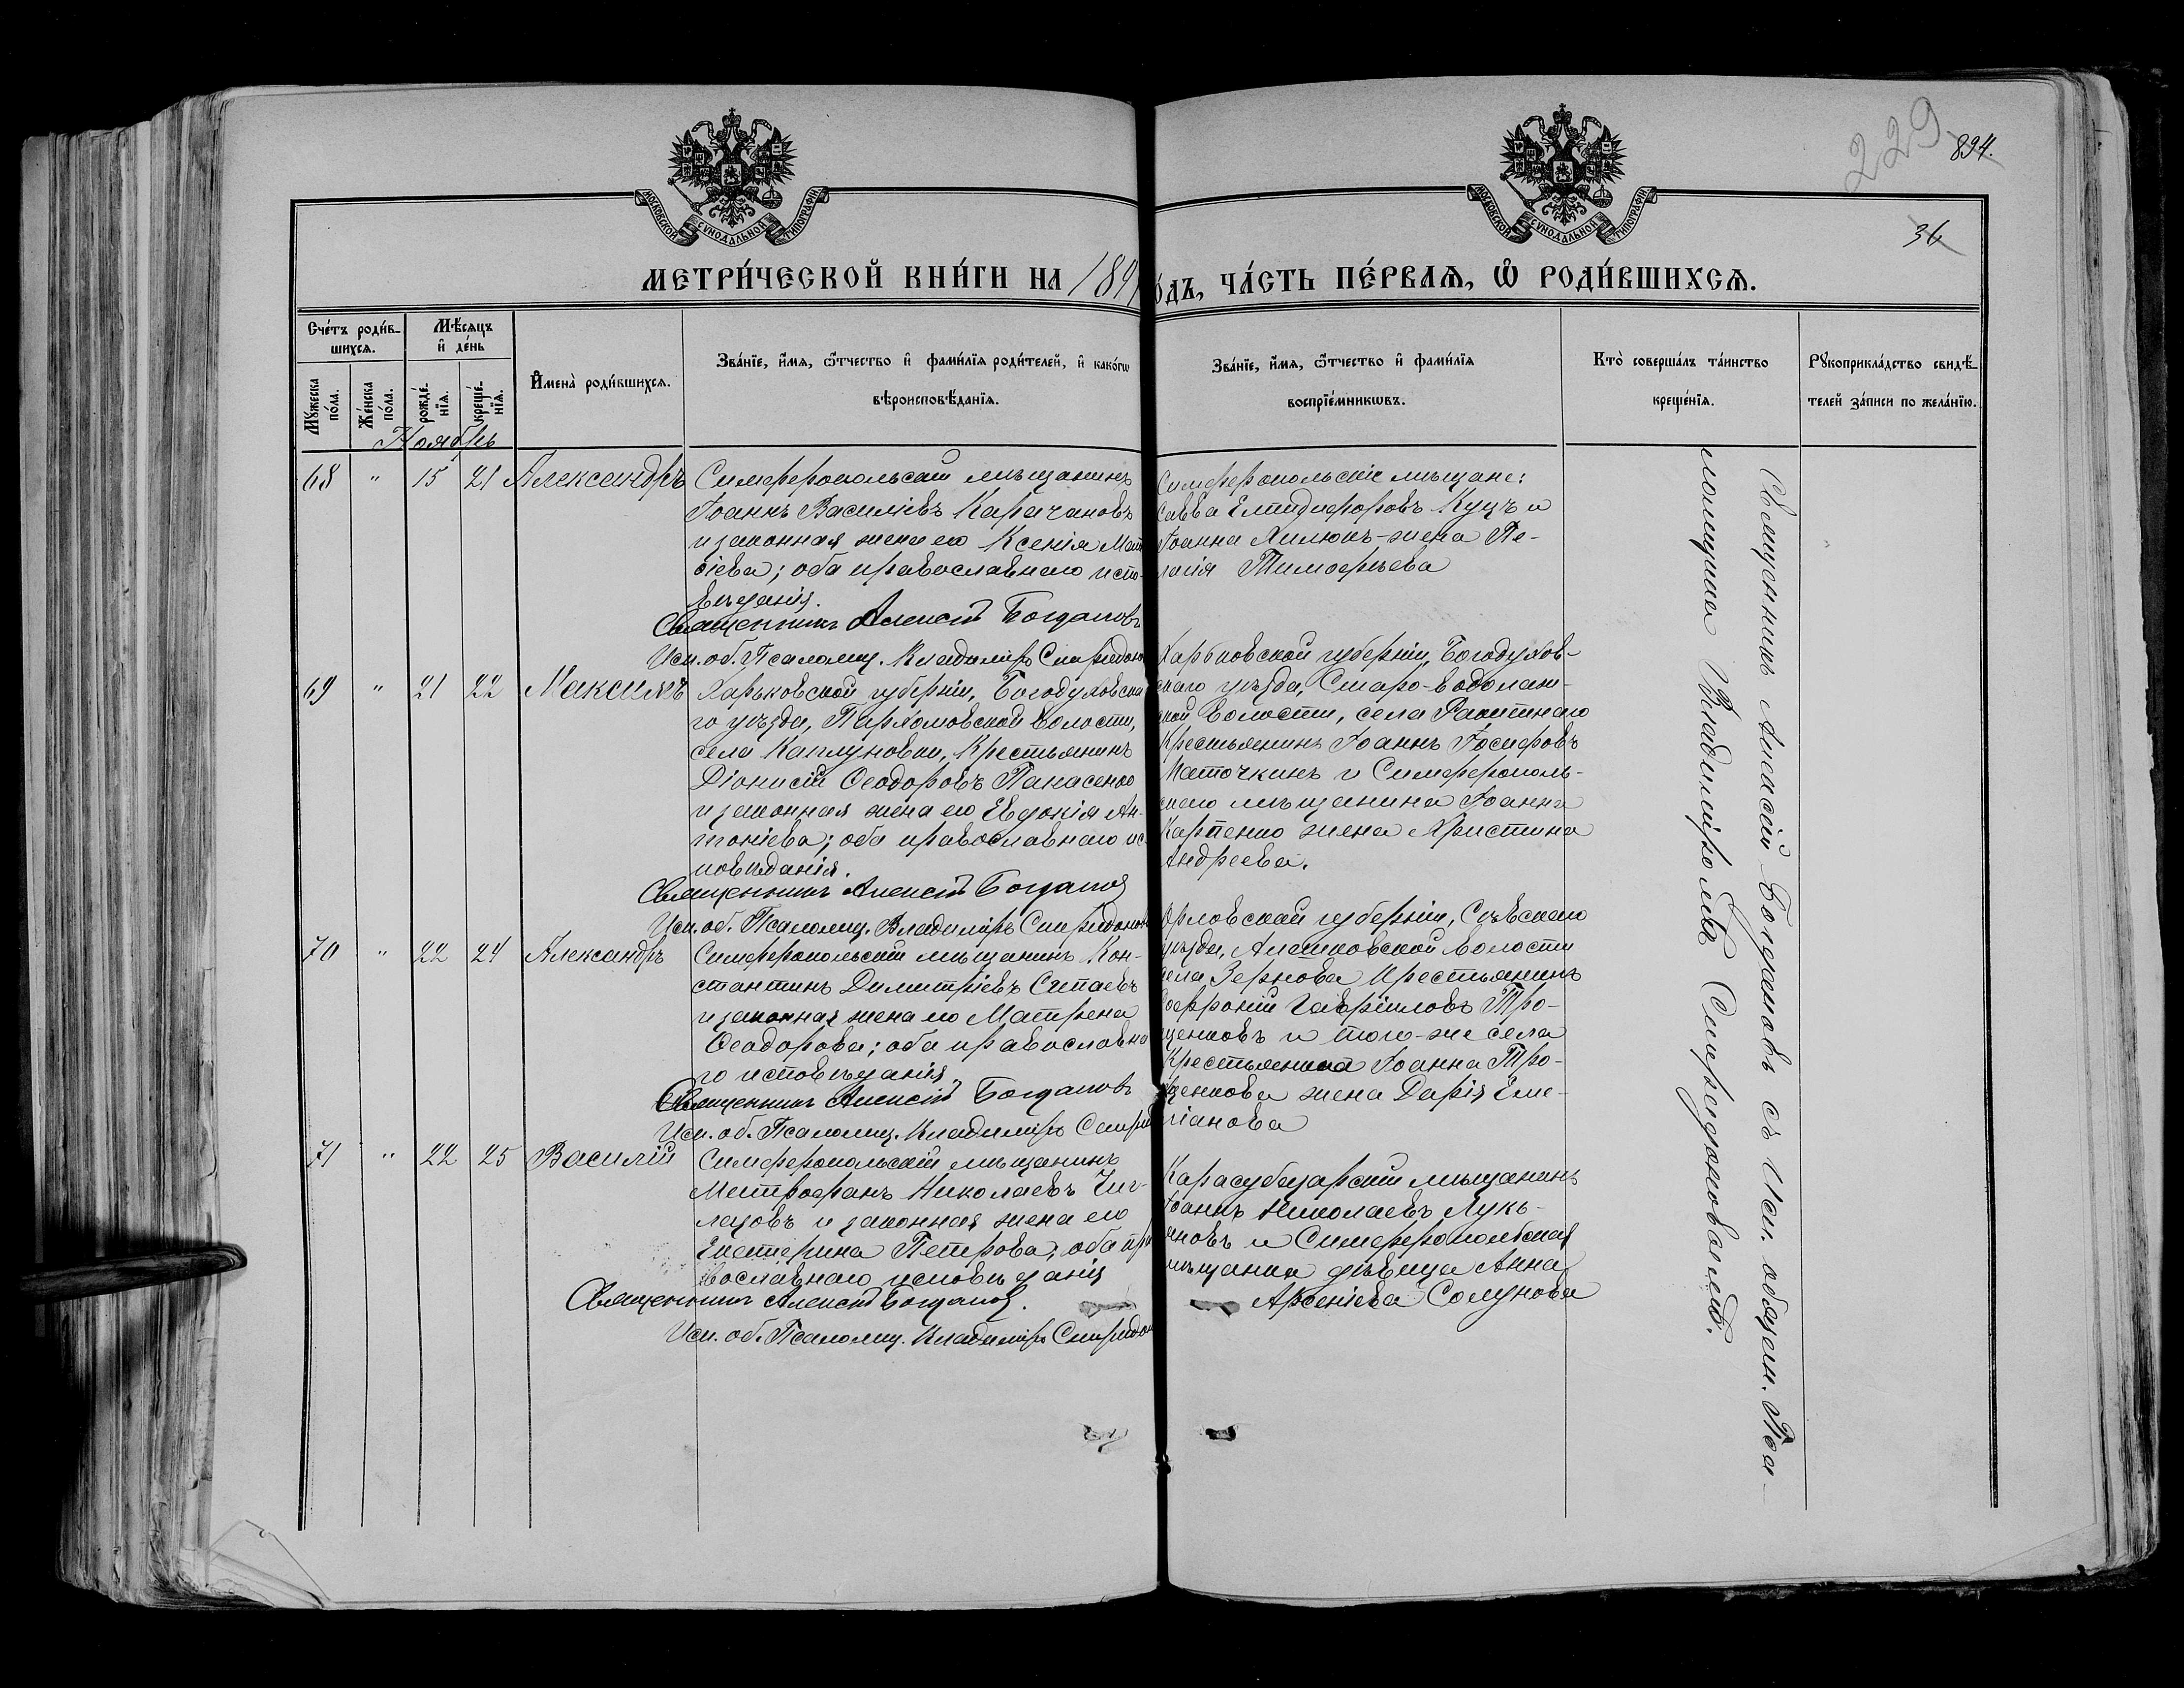 229
894.
36
МОСКОВСКОЙ СѴНОДАЛЬНОЙ ТИПОГРАФІИ
МОСКОВСКОЙ СѴНОДАЛЬНОЙ ТИПОГРАФІИ
МЕТРИ́ЧЕСКОЙ КНИ́ГИ НА 189
о́дъ, ЧА́СТЬ ПЕ́РВАѦ, Ѡ РОДИ́ВШИХСѦ.
Сче́тъ роди́в-
шихсѧ.
Мꙋ́жеска по́ла.
Же́нска по́ла.
Мѣ́сѧцъ и҆ де́нь
рожде́-нїѧ.
креще́-нїѧ.
И҆мена̀ роди́вшихсѧ.
Зва́нїе, и҆́мѧ, ѻ҆́тчество и҆ фами́лїѧ роди́телей, и҆ како́гѡ
вѣроисповѣ́данїѧ.
Зва́нїе, и҆́мѧ, ѻ҆́тчество и҆ фами́лїѧ
воспрїе́мникѡвъ.
Кто̀ соверша́лъ та́инство
креще́нїѧ.
Рꙋкоприкла́дство свидѣ́-
телей за́писи по жела́нїю.
Ноябрь
68 " 15 21 Александръ
Симферопольскій мѣщанинъ
Іоаннъ Василіевъ Карачановъ
и законная жена его Ксенія Мат
ѳіева; оба православнаго испо-
вѣданія.
Священникъ Алексій Богдановъ
Исп. об. Псаломщ. Владиміръ Спиридоно
Симферопольскіе мѣщане:
Савва Епидифоровъ Куцъ и
Іоанна Хилюкъ-жена Пе-
лагія Тимофѣева
69 " 21 22 Максимъ
Харьковской губерніи, Богодуховска
го уѣзда, Пархомовской волости,
села Каплуновки, Крестьянинъ
Діонисій Ѳеодоровъ Панасенко
и законная жена его Евдокія Ан-
тоніева; оба православнаго ис-
повѣданія.
Священникъ Алексій Богдановъ
Исп. об. Псаломщ. Владиміръ Спиридонов
Харьковской губерніи, Богодухов-
скаго уѣзда, Старо-водолаж-
ской волости, села Ракитнаго
Крестьянинъ Іоаннъ Іосифовъ
Маточкинъ и Симферополь-
скаго мѣщанина Іоанна
Карпенко жена Христина
Андреева.
70 " 22 24 Александръ
Симферопольскій мѣщанинъ Кон-
стантинъ Димитріевъ Сипаевъ
и законная жена его Матрена
Ѳеодорова; оба православна
го исповѣданія.
Священникъ Алексій Богдановъ
Исп. об. Псаломщ. Владиміръ Спирид
Орловской губерніи, Сѣвскаго
уѣзда, Алешковской волости
села Зернова Крестьянинъ
Софроній Гавріиловъ Тро-
щенковъ и того-же села
Крестьянина Іоанна Тро-
щенкова жена Дарія Еме-
ліанова
71 " 22 25 Василій
Симферопольскій мѣщанинъ
Митрофанъ Николаевъ Чиг-
лазовъ и законная жена его
Екатерина Петрова; оба пра
вославнаго исповѣданія
Священникъ Алексій Богдановъ.
Исп. об. Псаломщ. Владиміръ Спиридон
Карасубазарскій мѣщанинъ
Іоаннъ Николаевъ Лукь-
яновъ и Симферопольская
мѣщанка дѣвица Анна
Арсеніева Солунова
Священникъ Алексій Богдановъ съ Исп. обязан. Пса-
ломщика Владиміромъ Спиридоновымъ.